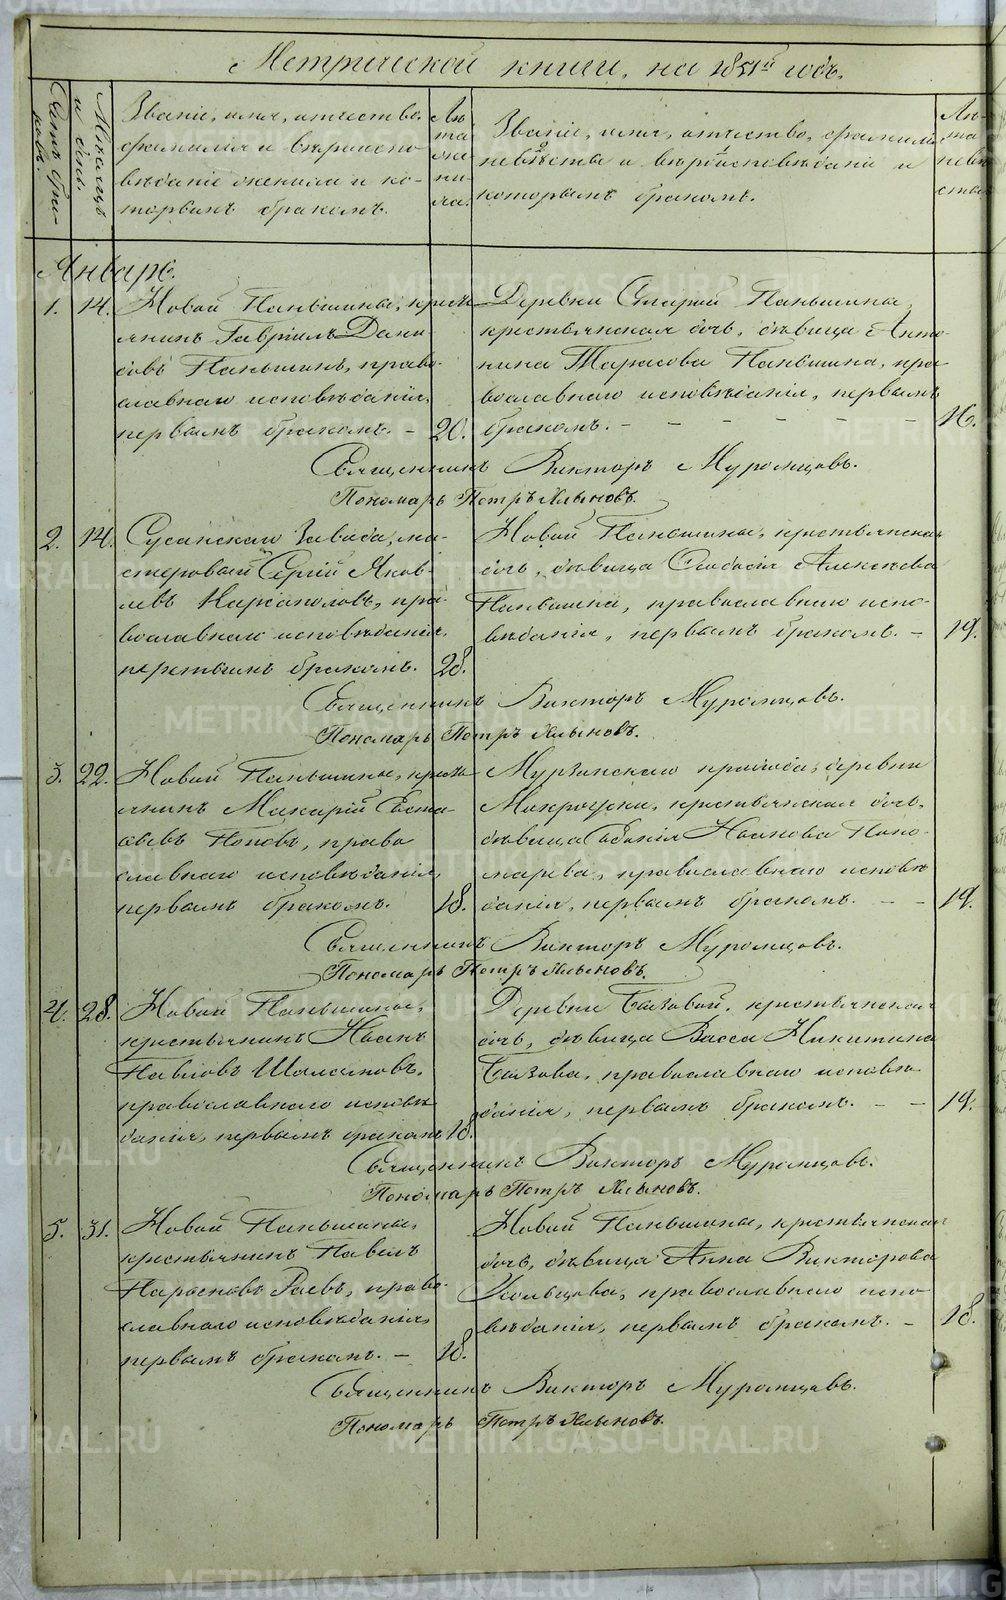 Метрической книги, на 1851й годъ.
Счетъ бра-
ковъ.
Мѣсяцъ
и день.
Званіе, имя, отчество,
фамилія и вѣроиспо-
вѣданіе жениха и ко-
торымъ бракомъ.
Лѣ
та
же
ни-
ха.
Званіе, имя, отчество, фамилія
невѣсты и вѣроисповѣданіе и
которымъ бракомъ.
Лѣ-
та
невѣ
сты
Январь.
1. 14. Новой Паньшины, кресть
янинъ Гавріилъ Дани-
ловъ Паньшинъ, право-
славнаго исповѣданія,
первымъ бракомъ. – 20.
Деревни Старой Паньшины,
крестьянская дочь, дѣвица Анто-
нина Тарасова Паньшина, пра-
вославнаго исповѣданія, первымъ
бракомъ. – – – – – – 16.
Священникъ Викторъ Муромцовъ.
Пономарь Петръ Хлыновъ.
2. 14. Сусанскаго Завода, ма-
стеровой Сергій Яков-
левъ пра-
вославнаго исповѣданія,
бракомъ. 28.
Новой Паньшины, крестьянская
дочь, дѣвица Алексѣева
Паньшина, православнаго испо-
вѣданія, первымъ бракомъ. – 19.
Священникъ Викторъ Муромцовъ.
Пономарь Петръ Хлыновъ.
3. 22. Новой Паньшины, кресть
янинъ Макарій Евста-
Поповъ, право
славнаго исповѣданія,
первымъ бракомъ. 18.
Мурзинскаго прихода, деревни
Мокроуски, крестьянская дочь,
дѣвица Иванова Поно-
марева, православнаго исповѣ
данія, первымъ бракомъ. – – 19.
Священникъ Викторъ Муромцовъ.
Пономарь Петръ Хлыновъ.
4. 28. Новой Паньшины,
крестьянинъ Иванъ
Павловъ Шаламовъ,
православнаго исповѣ
данія, первымъ бракомъ 18.
Деревни крестьянская
дочь, дѣвица Васса Никитина
православнаго исповѣ
данія, первымъ бракомъ. – – 19.
Священникъ Викторъ Муромцовъ.
Пономарь Петръ Хлыновъ.
5. 31. Новой Паньшины,
крестьянинъ Павелъ
право-
славнаго исповѣданія,
первымъ бракомъ. – 18.
Новой Паньшины, крестьянская
дочь, дѣвица Анна Викторова
Усольцова, православнаго испо
вѣданія, первымъ бракомъ. – 18.
Священникъ Викторъ Муромцовъ.
Пономарь Петръ Хлыновъ.
METRIKI.GASO-URAL.RU